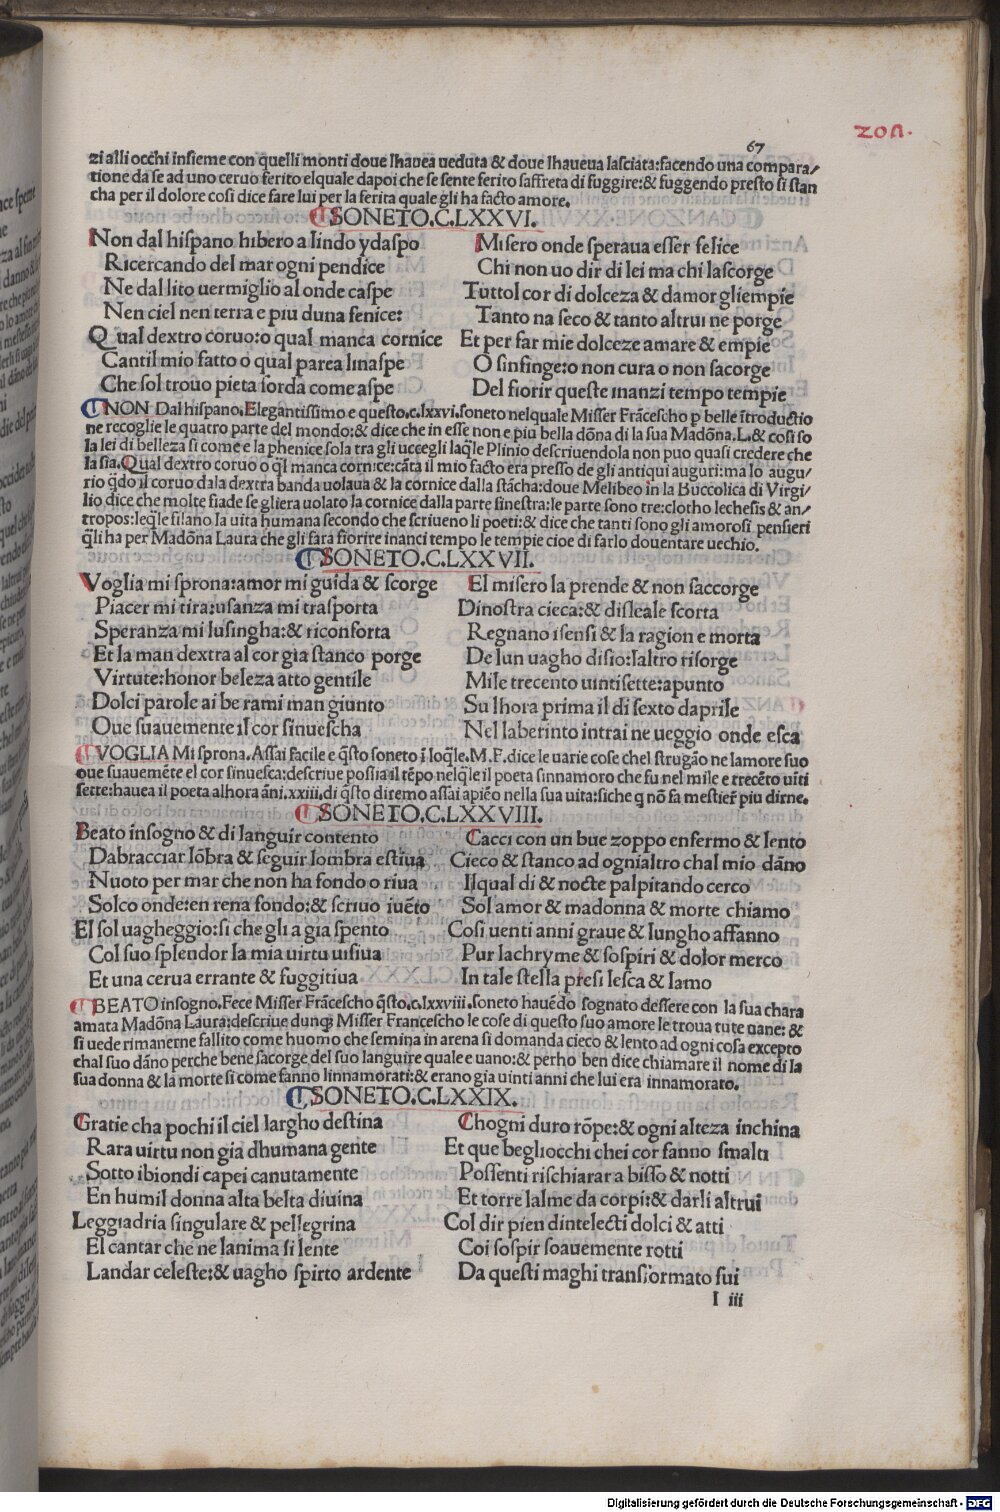 201.
67
zi alli occhi insieme con quelli monti doue lhauea ueduta & doue lhaueua lasciata: facendo una compara/
tione da se ad uno ceruo ferito elquale dapoi che se sente ferito saffreta di fuggire: & fuggendo presto si stan
cha per il dolore cosi dice fare lui per la ferita quale gli ha facto amore.
SONETO.C.LXXVI.
Non dal hispano hibero a lindo ydaspo
Ricercando del mar ogni pendice
Ne dal lito uermiglio al onde caspe
Nen ciel nen terra e piu duna fenice:
Qual dextro coruo: o qual manca cornice
Canti l mio fatto o qual parca linaspe
Che sol trouo pieta sorda come aspe
Misero onde speraua esser felice
Chi non uo dir di lei ma chi lascorge
Tuttol cor di dolceza & damor gliempie
Tanto na seco & tanto altrui ne porge
Et per far mie dolceze amare & empie
O sinfinge: o non cura o non sacorge
Del fiorir queste inanzi tempo tempie
NON Dal hispano. Elegantissimo e questo .c.lxxvi. soneto nelquale Misser Frācescho p belle ītroductio
ne recoglie le quatro parte del mondo: & dice che in esse non e piu bella dōna di la sua Madōna. L. & cosi so
la lei di belleza si come e la phenice sola tra gli uccegli laq̄le Plinio descriuendola non puo quasi credere che
la sia. Qual dextro coruo o q̄l manca cornice: cātā il mio facto era presso de gli antiqui auguri: ma lo augu/
rio q̄do il coruo dala dextra banda uolaua & la cornice dalla stācha: doue Melibeo in la Buccolica di Virgi/
lio dice che molte fiade se gliera uolato la cornice dalla parte sinestra: le parte sono tre: clotho lechesis & an/
tropos: leq̄le filano la uita humana secondo che scriueno li poeti: & dice che tanti sono gli amorosi pensieri
q̄li ha per Madōna Laura che gli fara fiorire inanci tempo le tempie cioe di farlo douentare uechio.
SONETO.C.LXXVII.
Voglia mi sprona: amor mi guida & scorge
Piacer mi tira: usanza mi trasporta
Speranza mi lusingha: & riconforta
Et la man dextra al cor gia stanco porge
Virtute: honor beleza atto gentile
Dolci parole ai be rami man giunto
Oue suauemente il cor sinuescha
El misero la prende & non saccorge
Dinostra cieca: & disleale scorta
Regnano i sensi & la ragion e morta
De lun uagho disio: laltro risorge
Mile trecento uintisette: apunto
Su lhora prima il di sexto daprile
Nel laberinto intrai ne ueggio onde esca
VOGLIA Mi sprona. Assai facile e q̄sto soneto ī loq̄le. M. F. dice le uarie cose chel strugāo ne lamore suo
oue suauemēte el cor sinuesca: descriue possia il tēpo nelq̄le il poeta sinnamoro che fu nel mile e trecēto uiti
sette: hauea il poeta alhora āni. xxiii. di q̄sto diremo assai apieō nella sua uita: siche q̄ nō fa mestier̄ piu dirne.
SONETO.C.LXXVIII.
Beato insogno & di languir contento
Dabracciar lōbra & seguir lombra estiua
Nuoto per mar che non ha fondo o riua
Solco onde: en rena fondo: & scriuo iuēto
El sol uagheggio: si che gli a gia spento
Col suo splendor la mia uirtu uisiua
Et una cerua errante & fuggitiua
Cacci con un bue zoppo enfermo & lento
Cieco & stanco ad ognialtro chal mio dāno
Ilqual di & nocte palpitando cerco
Sol amor & madonna & morte chiamo
Cosi uenti anni graue & lungho affanno
Pur lachryme & sospiri & dolor merco
In tale stella presi lesca & lamo
BEATO insogno. Fece Misser Frācescho q̄sto .c.lxxviii. soneto hauēdo sognato dessere con la sua chara
amata Madōna Laura: descriue dunq; Misser Francescho le cose di questo suo amore le troua tute uane: &
si uede rimanerne fallito come huomo che semina in arena si domanda cieco & lento ad ogni cosa excepto
chal suo dāno perche bene sacorge del suo languire quale e uano: & perho ben dice chiamare il nome di la
sua donna & la morte si come fanno linnamorati: & erano gia uinti anni che lui era innamorato.
SONETO.C.LXXIX.
Gratie cha pochi il ciel largho destina
Rara uirtu non gia dhumana gente
Sotto ibiondi capei canutamente
En humil donna alta belta diuina
Leggiadria singulare & pellegrina
El cantar che ne lanima si lente
Landar celeste: & uagho spirto ardente
Chogni duro rōpe: & ogni alteza inchina
Et que begliocchi chei cor fanno smalti
Possenti rischiarar abisso & notti
Et torre lalme da corpi: & darli altrui
Col dir pien dintelecti dolci & atti
Coi sospir soauemente rotti
Da questi maghi transformato fui
I iii
Digitalisierung gefördert durch die Deutsche Forschungsgemeinschaft - DFG